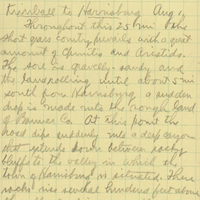 Kimball to Harrisburg Aug 1,
Throughout this 25 mi take
short grass country, prevails with a great
amount of Grintis and Aristida.
The soil is gravelly sandy and
the land rolling until about 5 mi
south from Harrisburg a sudden
drop is made into the rough land
of Banner Co. At this point the
road dips suddenly into a deep canyon
that extends down between rocky
bluffs to the valley in which the
town of Harrisburg is situated. These
rocks rise several hundred feet above